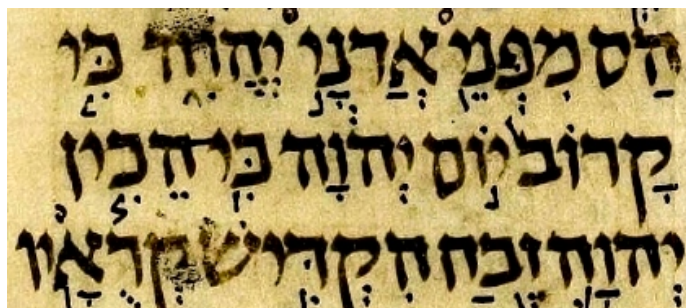 הַס מִפְּנֵי אֲדֹנָי יֱהֹוִה כִּי
קָרוֹב יוֹם יְהוָה כִּי־הֵכִין
יְהוָה זֶבַח הִקְדִּישׁ קְרֻאָיו